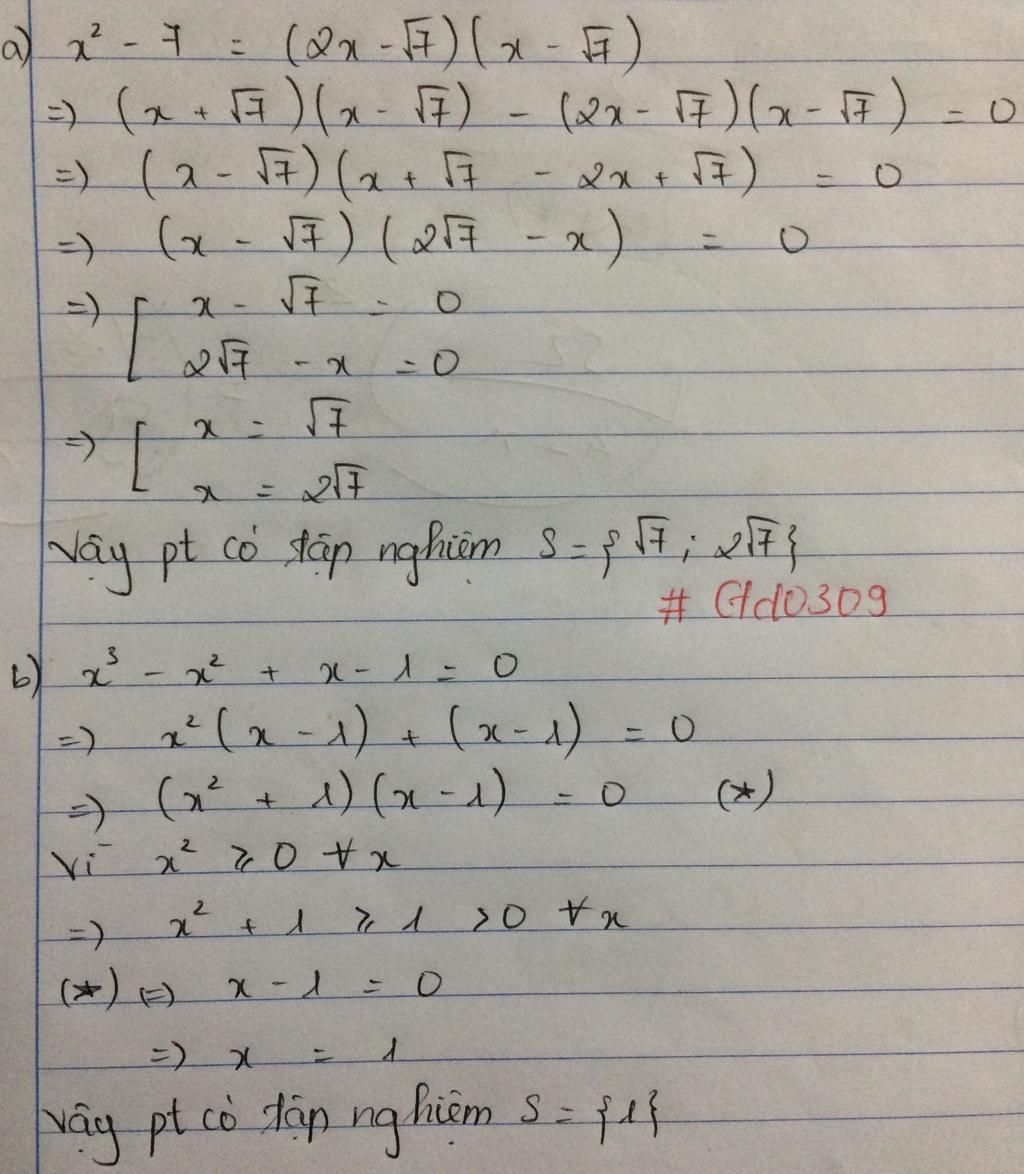 a) x² - 7 = (2x - √7)(x - √7)
=> (x + √7)(x - √7) - (2x - √7)(x - √7) = 0
=> (x - √7)(x + √7 - 2x + √7) = 0
=> (x - √7)(2√7 - x) = 0
=> [ x - √7 = 0
2√7 - x = 0
=> [ x = √7
x = 2√7
Vậy pt có tập nghiệm S = {√7; 2√7}
# Gtd0309
b) x³ - x² + x - 1 = 0
=> x²(x - 1) + (x - 1) = 0
=> (x² + 1)(x - 1) = 0 (*)
Vì x² ≥ 0 ∀x
=> x² + 1 ≥ 1 > 0 ∀x
(*) <=> x - 1 = 0
=> x = 1
Vậy pt có tập nghiệm S = {1}